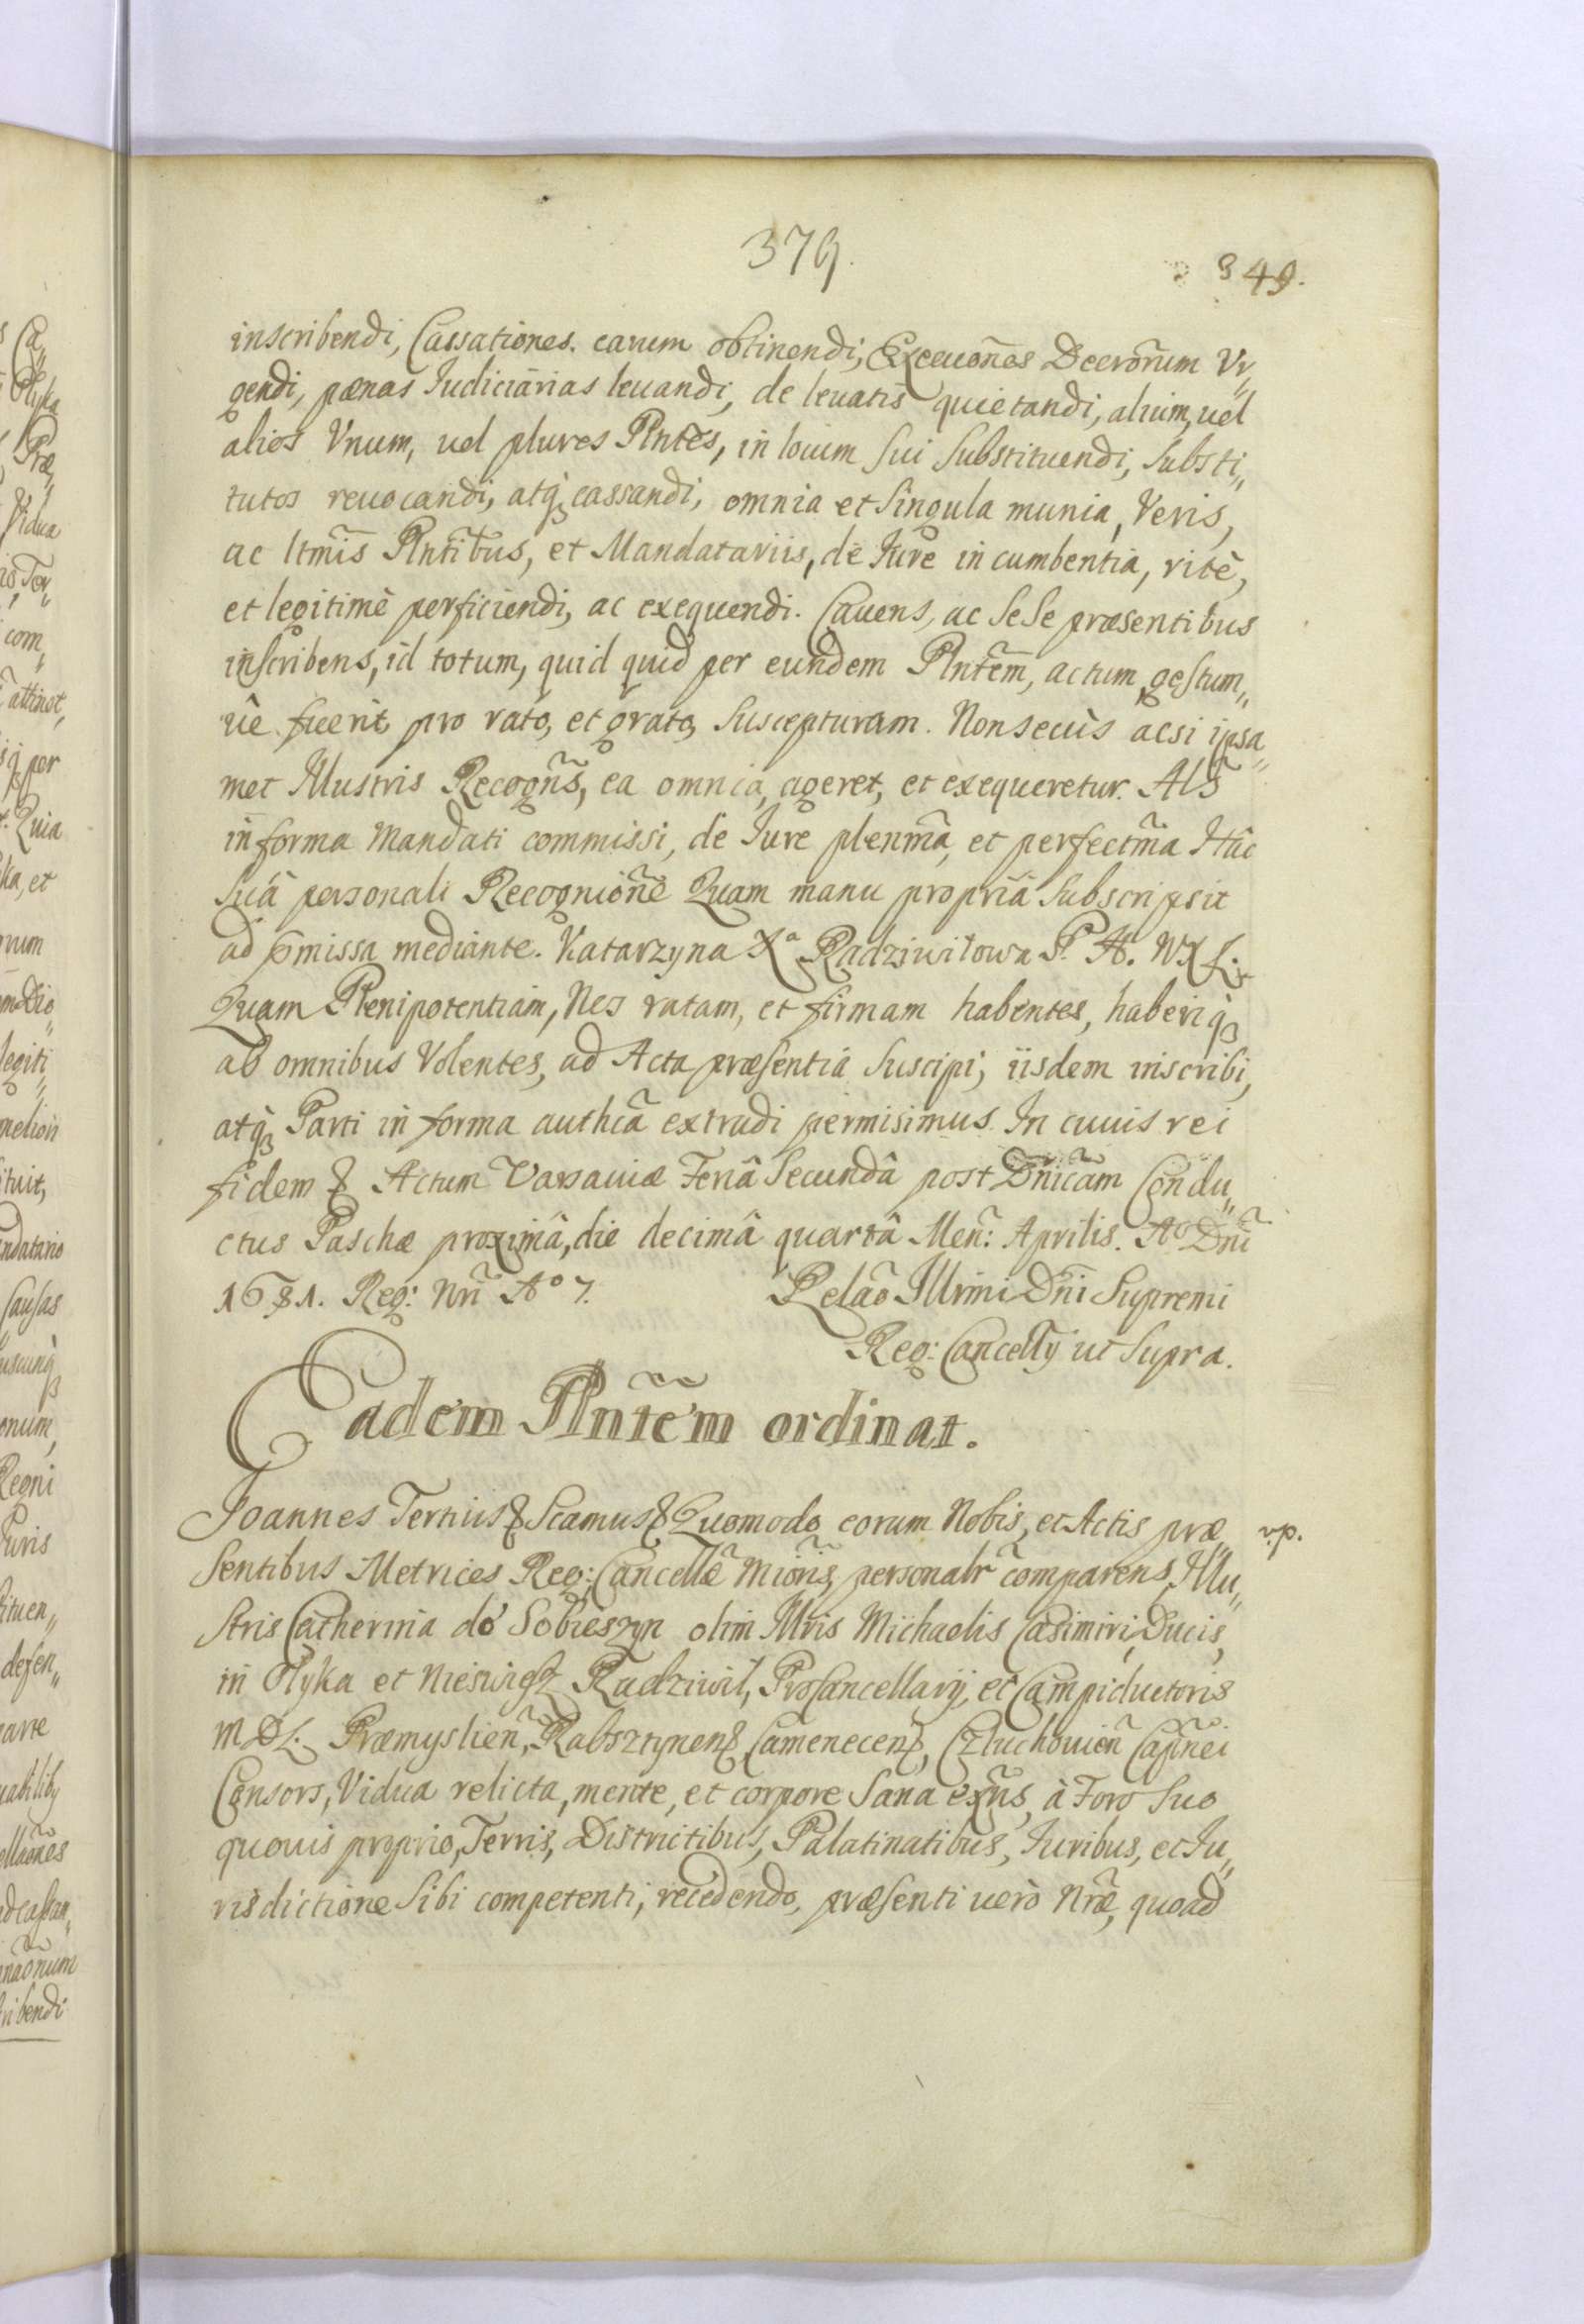 379.
349.
inscribendi, Cassationes. earum obtinendi, Execuo͠nes Decrõrum Vr„
gendi, pænas Iudiciarias leuandi, de leuatis quietandi, alium, uel
alios Vnum, uel plures Plnte͠s, in locum Sui Substituendi, Substi„
tutos reuocandi, atq; cassandi, omnia et Singula munia, Veris,
ac ltmi͠s Plnti͠bus, et Mandatariis, de Iure in cumbentia, ritè,
et legitimè perficiendi, ac exequendi. Cauens, ac SeSe præsentibus
inscribens, id totum, quid quid per eundem Plnte͠m, actum gestum„
ue fuerit, pro rato, et grato, Suscepturam. Non secùs acsi ipsa„
met Illustris Recogn͠s, ea omnia, ageret, et exequeretur. Al͠s
in forma Mandati commissi, de Iure plenm͠a, et perfectm͠a Hâc
Suâ personali Recognio͠ne Quam manu propriâ Subscripsit
ad p͠missa mediante. Katarzyna Xa Radziwiłowa P. H. WX L.
Quam Plenipotentiam, Nos ratam, et firmam habentes, haberiq;
ab omnibus Volentes, ad Acta præsentia Suscipi, iisdem inscribi,
atq; Parti in forma authc͠a extradi permisimus. In cuuis rei
fidem & Actum Varsauiæ Feriâ Secundâ post Dn͠icam Condu„
ctus Paschæ proximâ, die decimâ quartâ Men͠: Aprilis. Ao Dn͠i
1681. Reg: Nri͠ Ao 7.
Rela͠o Illmi Dn͠i Supremi
Reg: Cancellÿ ut Supra.
Eadem Plnte͠m ordinat.
Joannes Tertius & Scamus & Quomodo eorum Nobis, et Actis præ„
v.p.
Sentibus Metrices Reg: Cancellæ͠ Miori͠s, personalr͠ comparens Illu„
stris Catherina de Sobieszyn olim Illris Michaelis Casimiri, Ducis,
in Olyka et Nieswiesz Radziwił, ProCancellarÿ, et Campiductoris
M D L. Præmyslien͠, Rabsztynen & Camenecen &, Człuchouien͠ Capn͠ei
Consors, Vidua relicta, mente, et corpore Sana exn͠s, à Foro Suo
quouis proprio, Terris, Districtibus, Palatinatibus, Iuribus, et Iu„
risdictione Sibi competenti, recedendo, præsenti uerò Nræ͠, quoad